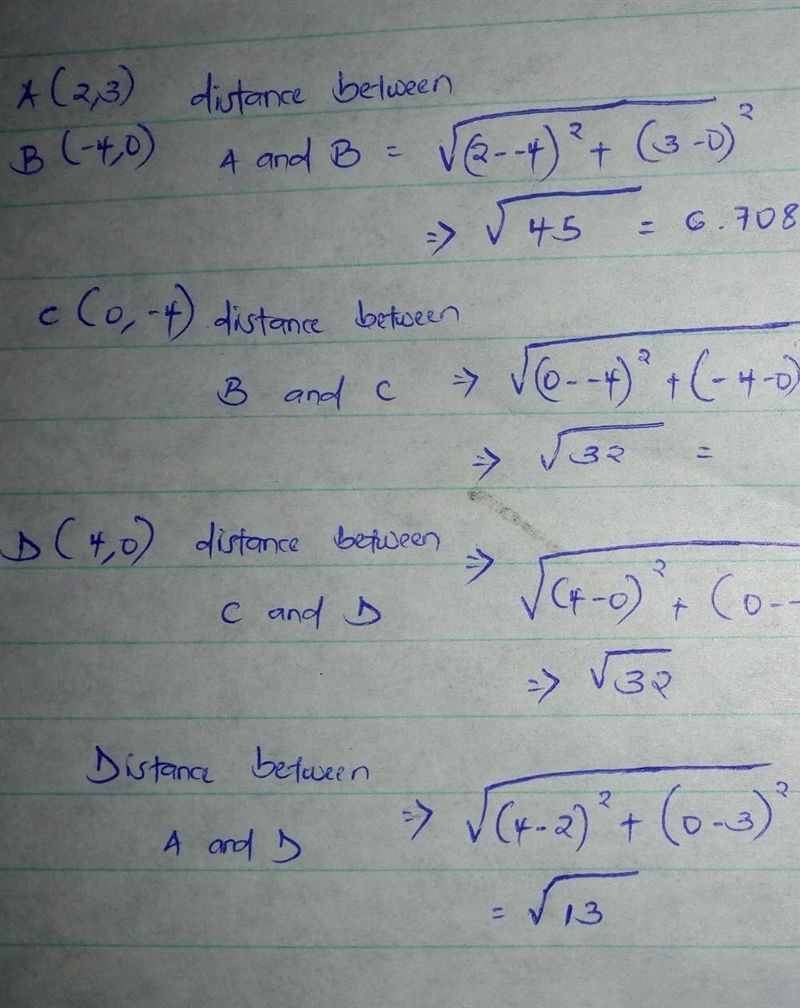 A (2,3) distance between
B (-4,0) A and B = √(2--4)² + (3-0)²
⇒ √45 = 6.708
C (0,-4) distance between
B and C ⇒ √(0--4)² + (-4-0)
⇒ √32 =
D (4,0) distance between
C and D ⇒ √(4-0)² + (0--
⇒ √32
Distance between
A and D ⇒ √(4-2)² + (0-3)²
= √13